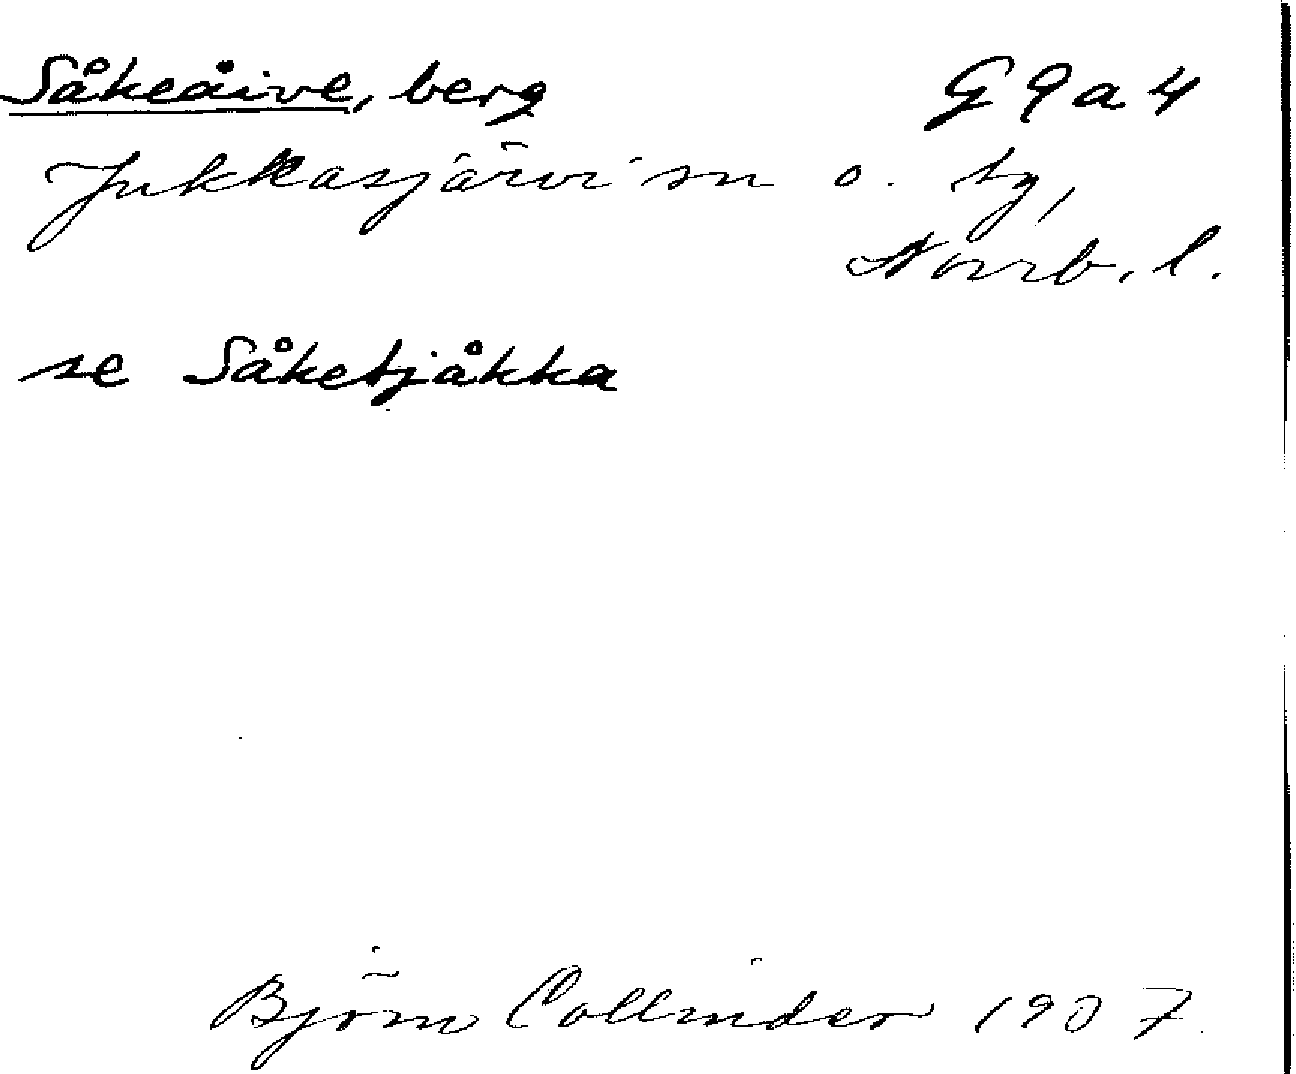 Såkeåive, berg G9a4
Jukkasjärvi sn o. tg,
Norrb. l.
se Såketjåkka
Björn Collinder 1907